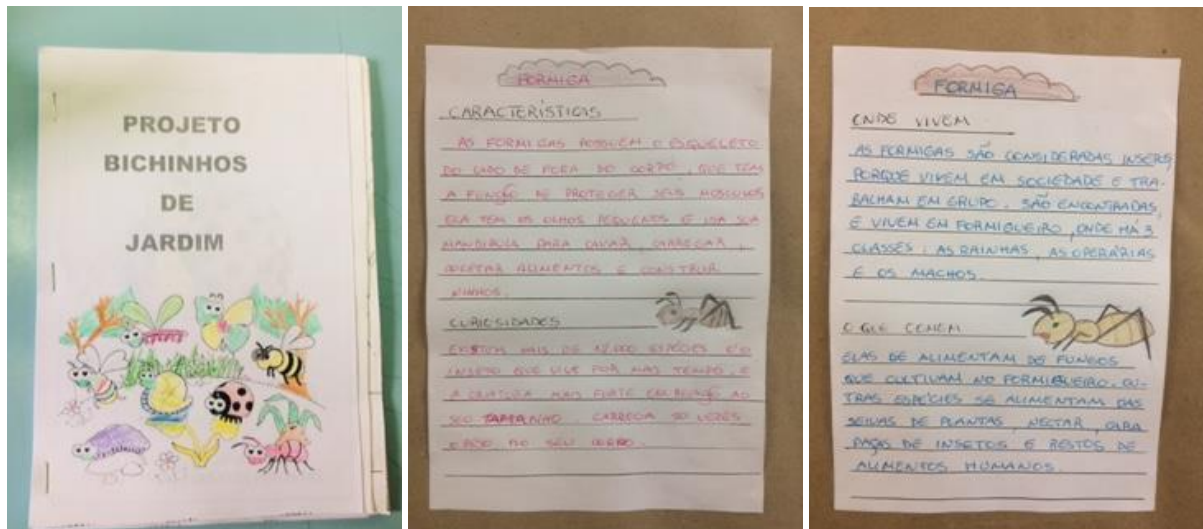 PROJETO
BICHINHOS
DE
JARDIM
FORMIGA
CARACTERÍSTICAS
AS FORMIGAS POSSUEM O ESQUELETO
DO LADO DE FORA DO CORPO, QUE TEM
A FUNÇÃO DE PROTEGER SEUS MÚSCULOS
ELA TEM OS OLHOS PEQUENOS E USA SUA
MANDÍBULA PARA CAVAR, CARREGAR,
COLETAR ALIMENTOS E CONSTRUIR
NINHOS.
CURIOSIDADES
EXISTEM MAIS DE 12.000 ESPÉCIES É O
INSETO QUE VIVE POR MAIS TEMPO, E
A CRIATURA MAIS FORTE EM RELAÇÃO AO
SEU TAMANHO. CARREGA 50 VEZES
O PESO DO SEU CORPO.
FORMIGA
ONDE VIVEM
AS FORMIGAS SÃO CONSIDERADAS
PORQUE VIVEM EM SOCIEDADE E TRA-
BALHAM EM GRUPO. SÃO ENCONTRADAS,
E VIVEM EM FORMIGUEIRO, ONDE HÁ 3
CLASSES: AS RAINHAS, AS OPERÁRIAS
E OS MACHOS.
O QUE COMEM
ELAS DE ALIMENTAM DE FUNGOS
QUE CULTIVAM NO FORMIGUEIRO. OU-
TRAS ESPÉCIES SE ALIMENTAM DAS
SEIVAS DE PLANTAS, NECTAR, CARA
PAÇAS DE INSETOS E RESTOS DE
ALIMENTOS HUMANOS.